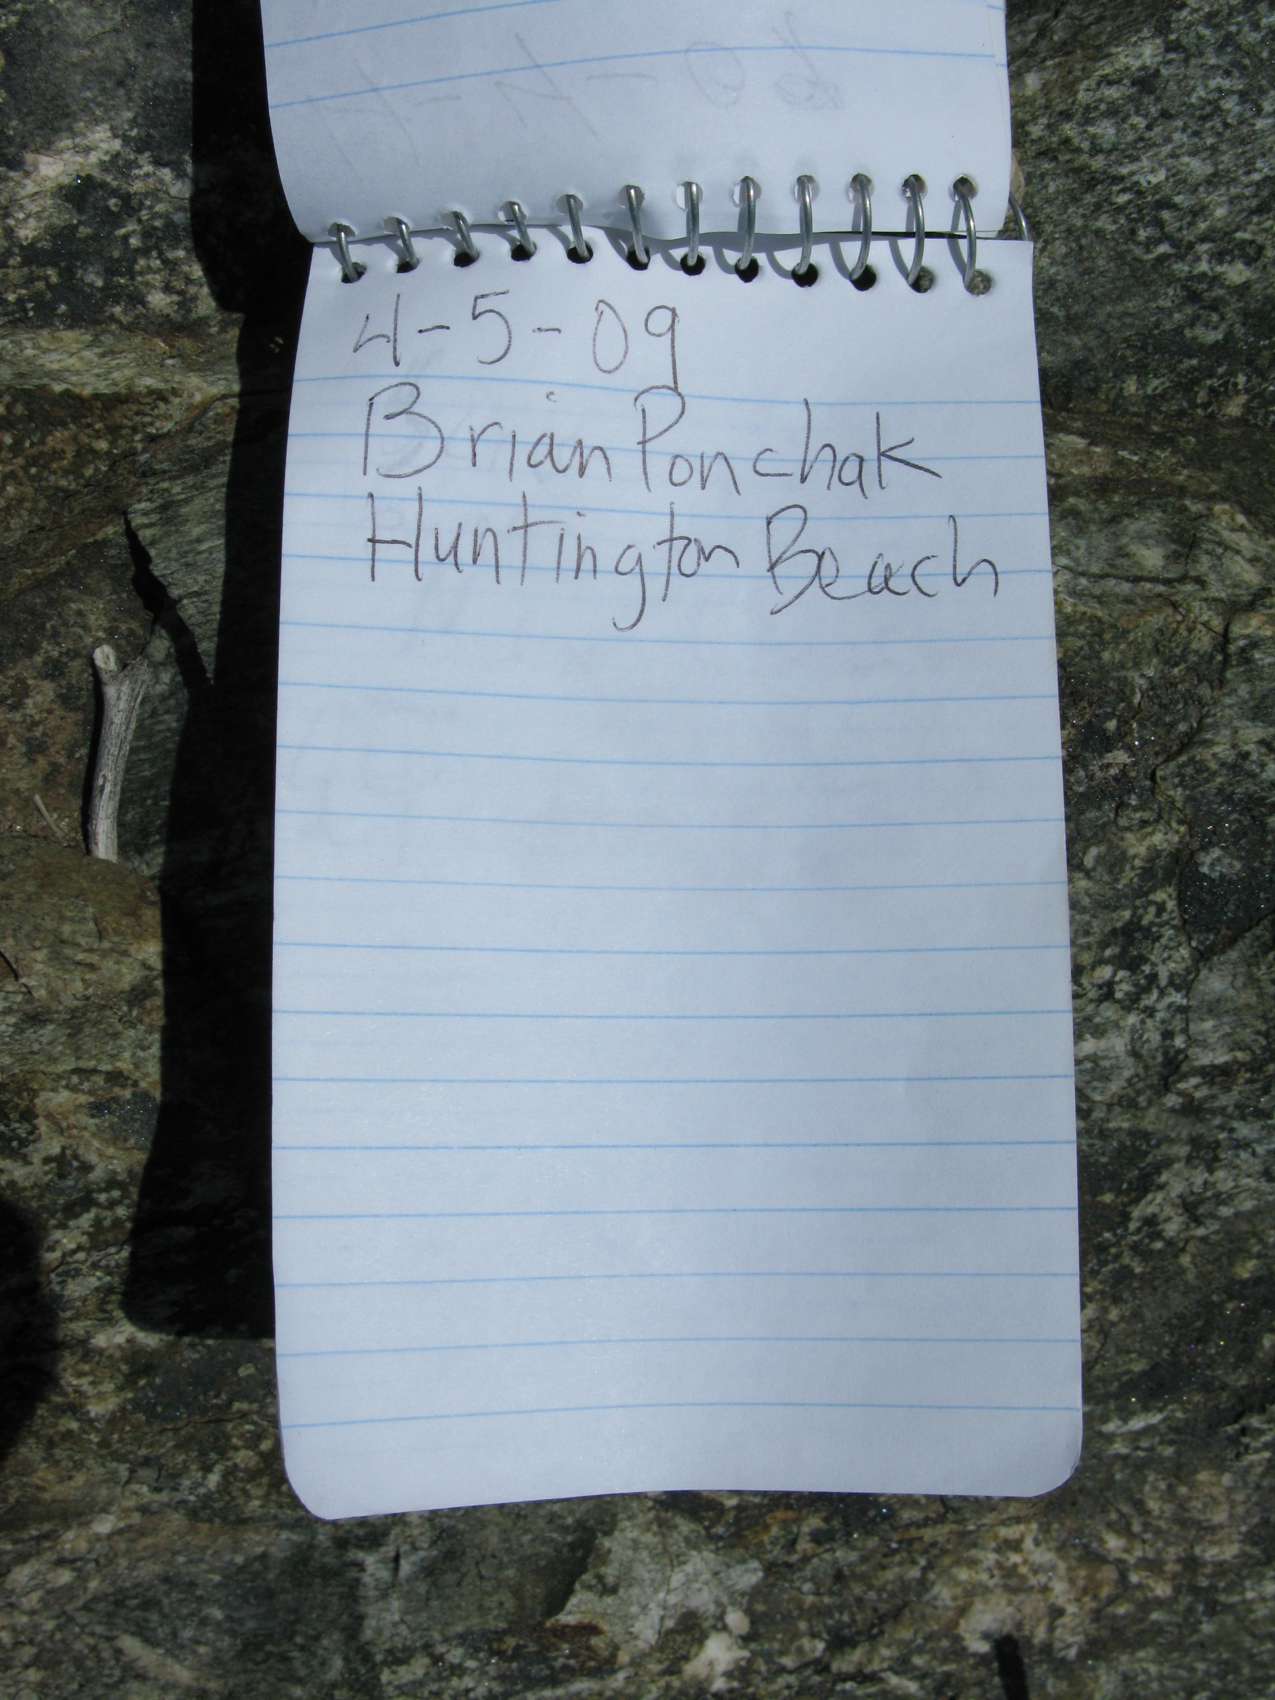 4-5-09
Brian Ponchak
Huntington Beach